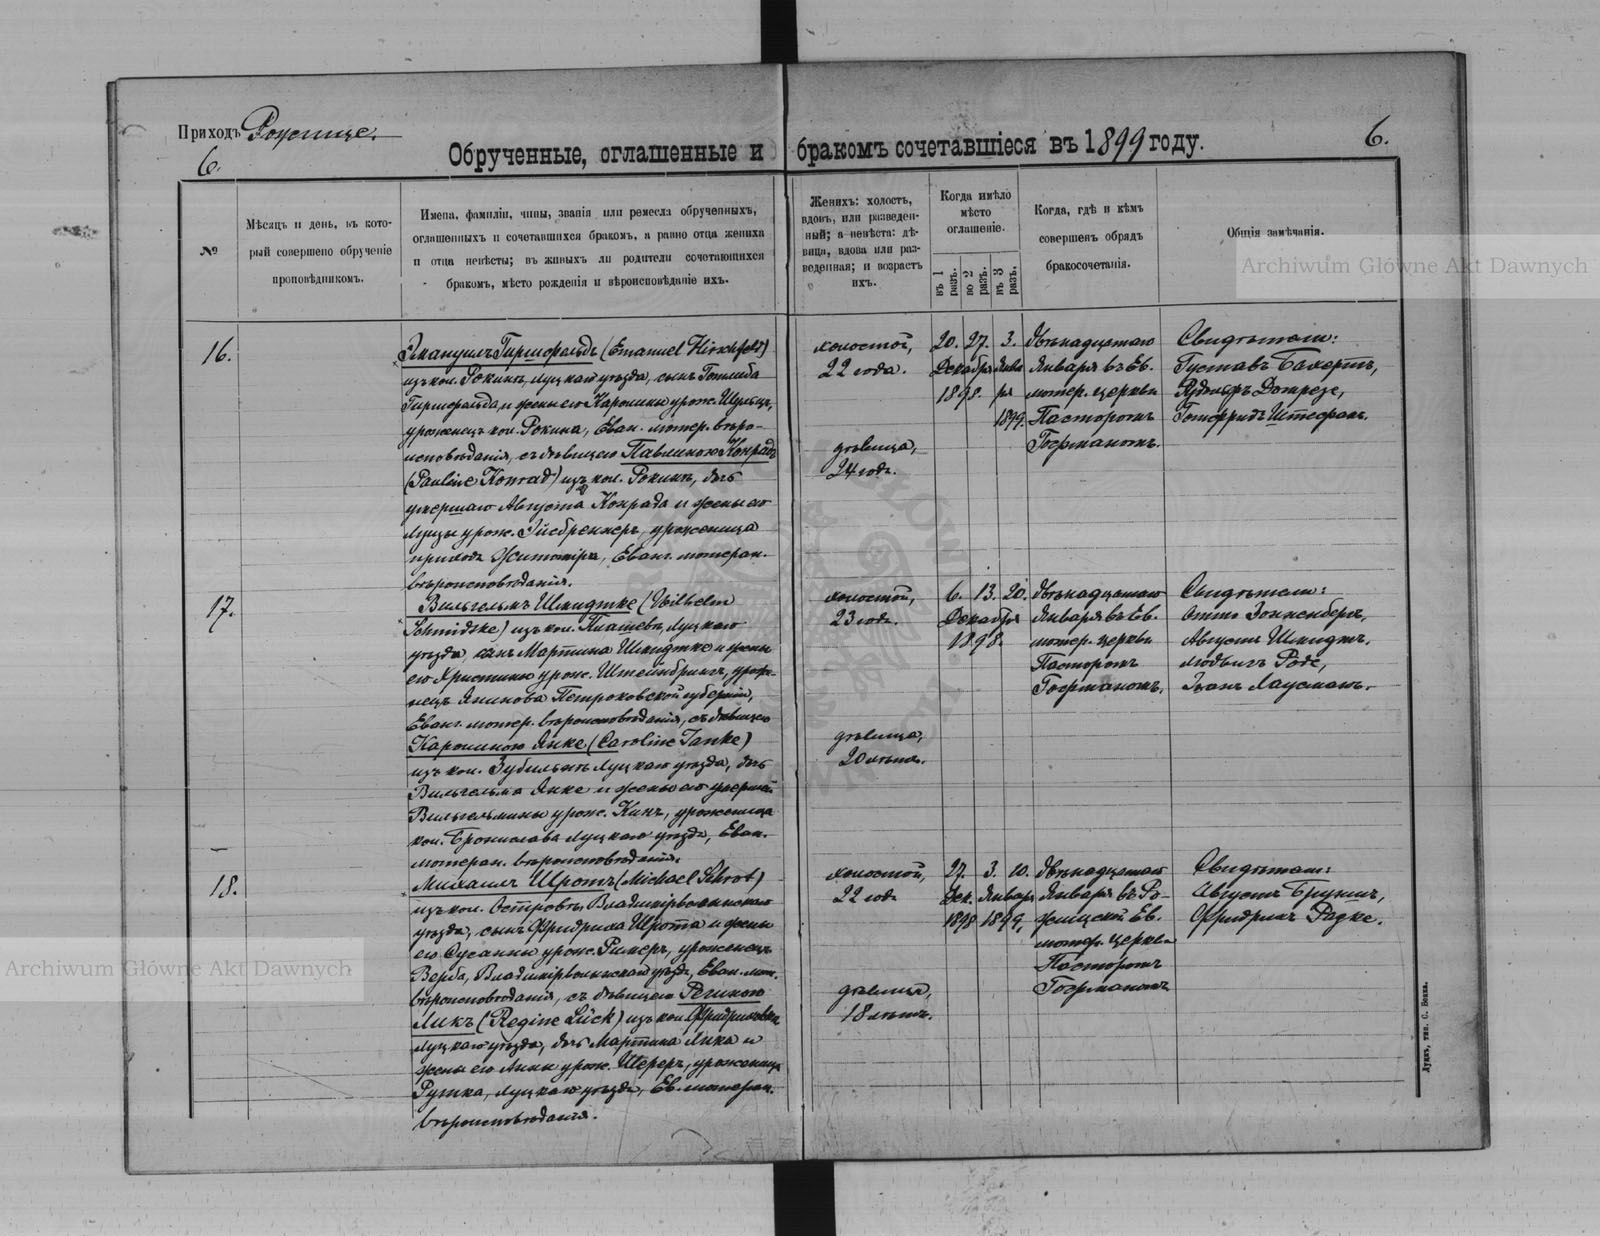 Приходъ Рожище.
6.
6.
Обрученные, оглашенные и бракомъ сочетавшіеся въ 1899 году.
№
Мѣсяцъ и день, въ кото-
рый совершено обрученіе
проповѣдникомъ.
Имена, фамиліи, чины, званія или ремесла обрученныхъ,
оглашенныхъ и сочетавшихся бракомъ, а равно отца жениха
и отца невѣсты; въ живыхъ ли родители сочетающихся
бракомъ, мѣсто рожденія и вѣроисповѣданіе ихъ.
Женихъ: холостъ,
вдовъ, или разведен-
ный; а невѣста: дѣ-
вица, вдова или раз-
веденная; и возрастъ
ихъ.
Когда имѣло
мѣсто
оглашеніе.
въ 1 разъ.
во 2 разъ.
въ 3 разъ.
Когда, гдѣ и кѣмъ
совершенъ обрядъ
бракосочетанія.
Общія замѣчанія.
16.
Эмануилъ Гиршфельдъ (Emanuel Hirschfeld)
изъ кол. Рокинъ, Луцкаго уѣзда, сынъ Готлиба
Гиршфельда и жены его Каролины урож. Шульцъ,
уроженецъ кол. Рокина, Еван. лютер. вѣро-
исповѣданія, съ дѣвицею Павлиною Конрадъ
(Pauline Konrad) изъ кол. Рокинъ, дочь
умершаго Августа Конрада и жены его
Луизы урож. Эйсбреннеръ, уроженица
прихода Житоміра, Еванг. лютеран.
вѣроисповѣданія.
холостой,
22 года.
дѣвица,
24 года.
20. 27. 3.
Декабря Янва
1898. ря
1899.
двѣнадцатаго
Января въ Ев.
лютер. церкви
Пасторомъ
Германомъ.
Свидѣтели:
Густавъ Бахертъ,
Рудольфъ
Готфридъ Штефанъ.
17.
Вильгельмъ Шмидтке (Wilhelm
Schmidtke) изъ кол. Пляшевъ, Луцкаго
уѣзда, сынъ Мартина Шмидтке и жены
его Христины урож. Штейнбрикъ, уроже-
нецъ Янинова Петроковской губерніи,
Еванг. лютер. вѣроисповѣданія, съ дѣвицею
Каролиною Янке (Caroline Janke)
изъ кол. Зубильно Луцкаго уѣзда, дочь
Вильгельма Янке и жены его умершей
Вильгельмины урож. Кинъ, уроженица
кол. Брониславъ Луцкаго уѣзда, Еван.
лютеран. вѣроисповѣданія.
холостой,
23 года.
дѣвица,
20 лѣтъ.
6. 13. 20.
Декабря
1898.
двѣнадцатаго
Января въ Ев.
лютер. церкви
Пасторомъ
Германомъ.
Свидѣтели:
Отто Зонненбергъ,
Августъ Шмидтъ,
Людвигъ Роде,
Иванъ Лаусманъ.
18.
Михаилъ Шротъ (Michael Schrot)
изъ кол. Островъ, Владимірволынскаго
уѣзда, сынъ Фридриха Шрота и жены
его Сусанны урож. Рикеръ, уроженецъ
Верба, Владимірволынскаго уѣзда, Еван. лют.
вѣроисповѣданія, съ дѣвицею Региною
Ликъ (Regine Lück) изъ кол. Фридриховки
Луцкаго уѣзда, дочь Мартина Лика и
жены его Анны урож. Шереръ, уроженица
Рудка, Луцкаго уѣзда, Ев. лютеран.
вѣроисповѣданія.
холостой,
22 года
дѣвица,
18 лѣтъ.
27. 3. 10.
Дек. Января
1898 1899.
двѣнадцатаго
Января въ Ро-
жищской Ев.
лютер. церкви
Пасторомъ
Германомъ
Свидѣтели:
Августъ
Фридрихъ Радке.
Луцкъ, тип. С. Бонка.
Archiwum Główne Akt Dawnych
Archiwum Główne Akt Dawnych